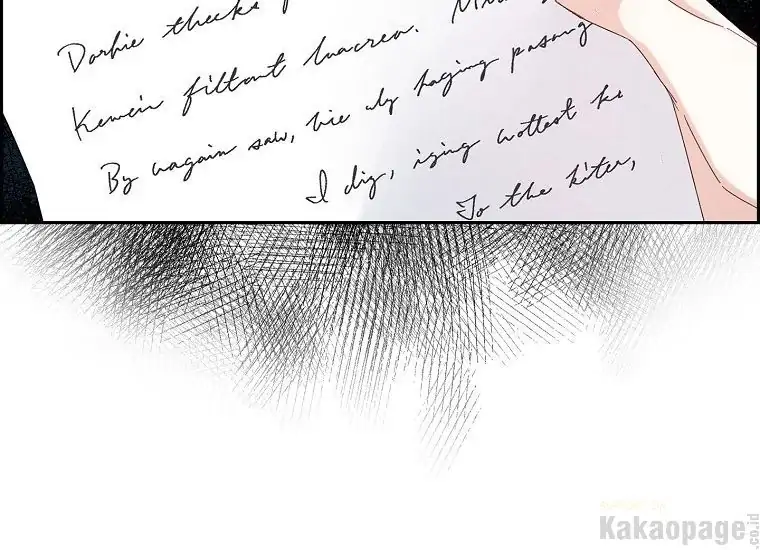 Dorhie theeks
Kemein filtant luacrea.
By wagain saw, hie uly haging pasong
I dig, iging wottest ki
To the kiter,
Kakaopage.co.id